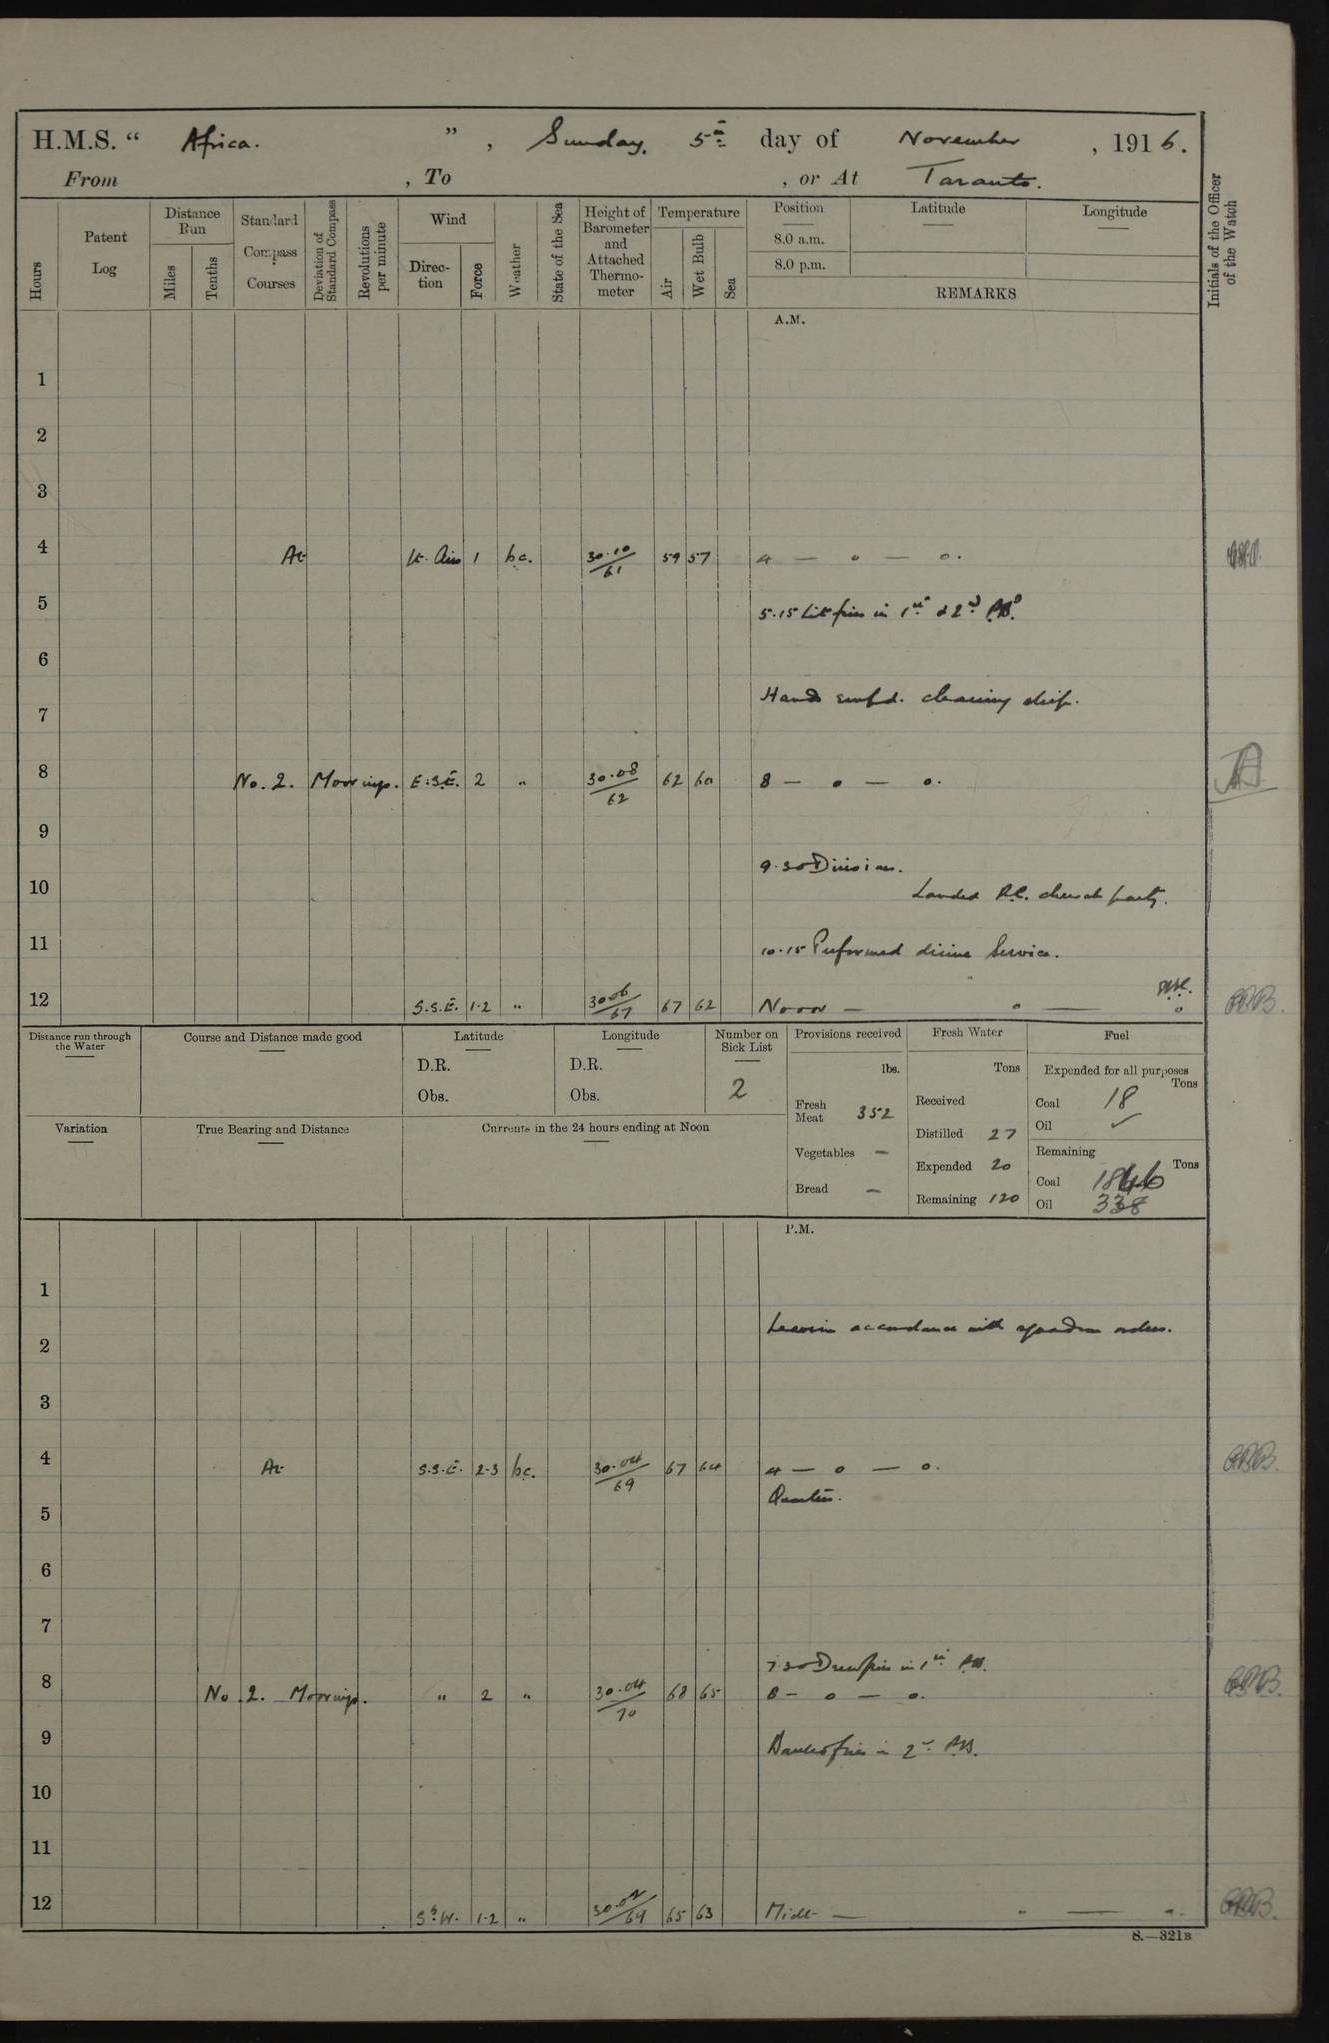 H.M.S. “ Africa. ” , Sunday, 5th day of November , 1916.
From , To , or At Taranto.
Hours
Patent Log
Distance Run
Miles
Tenths
Standard Compass Courses
Deviation of Standard Compass
Revolutions per minute
Wind
Direction
Force
Weather
State of the Sea
Height of Barometer and Attached Thermometer
Temperature
Air
Wet Bulb
Sea
Position
8.0 a.m.
8.0 p.m.
Latitude
Longitude
REMARKS
Initials of the Officer of the Watch
A.M.
1
2
3
4 At Lt. Airs 1 bc. 30.10/61 59 57 4 — o — o.
5 5.15 Lit fires in 1st & 2nd P.B.
6
Hands empd. cleaning ship.
7
8 No. 2. Moorings. E.S.E. 2 " 30.08/62 62 60 8 — o — o.
9
9.30 Divisions.
10 Landed R.C. church party.
11 10.15 Performed divine Service.
12 S.S.E. 1-2 " 30.06/67 67 62 Noon — o — o
Distance run through the Water
Course and Distance made good
Latitude
D.R.
Obs.
Longitude
D.R.
Obs.
Number on Sick List
2
Variation
True Bearing and Distance
Currents in the 24 hours ending at Noon
Provisions received
lbs.
Fresh Meat 352
Vegetables —
Bread —
Fresh Water
Tons
Received
Distilled 27
Expended 20
Remaining 120
Fuel
Expended for all purposes
Tons
Coal 18
Oil ✓
Remaining
Tons
Coal 1846
Oil 338
P.M.
1
Leave in accordance with squadron orders.
2
3
4 At S.S.E. 2-3 bc. 30.04/69 67 64 4 — o — o.
Quarters.
5
6
7
7.30 Drew fires in 1st P.B.
8 No. 2. Moorings. " 2 " 30.04/70 68 65 8 — o — o.
9 Banked fires in 2nd P.B.
10
11
12 S. W. 1-2 " 30.02/69 65 63 Midt. — o — o.
S.—321B